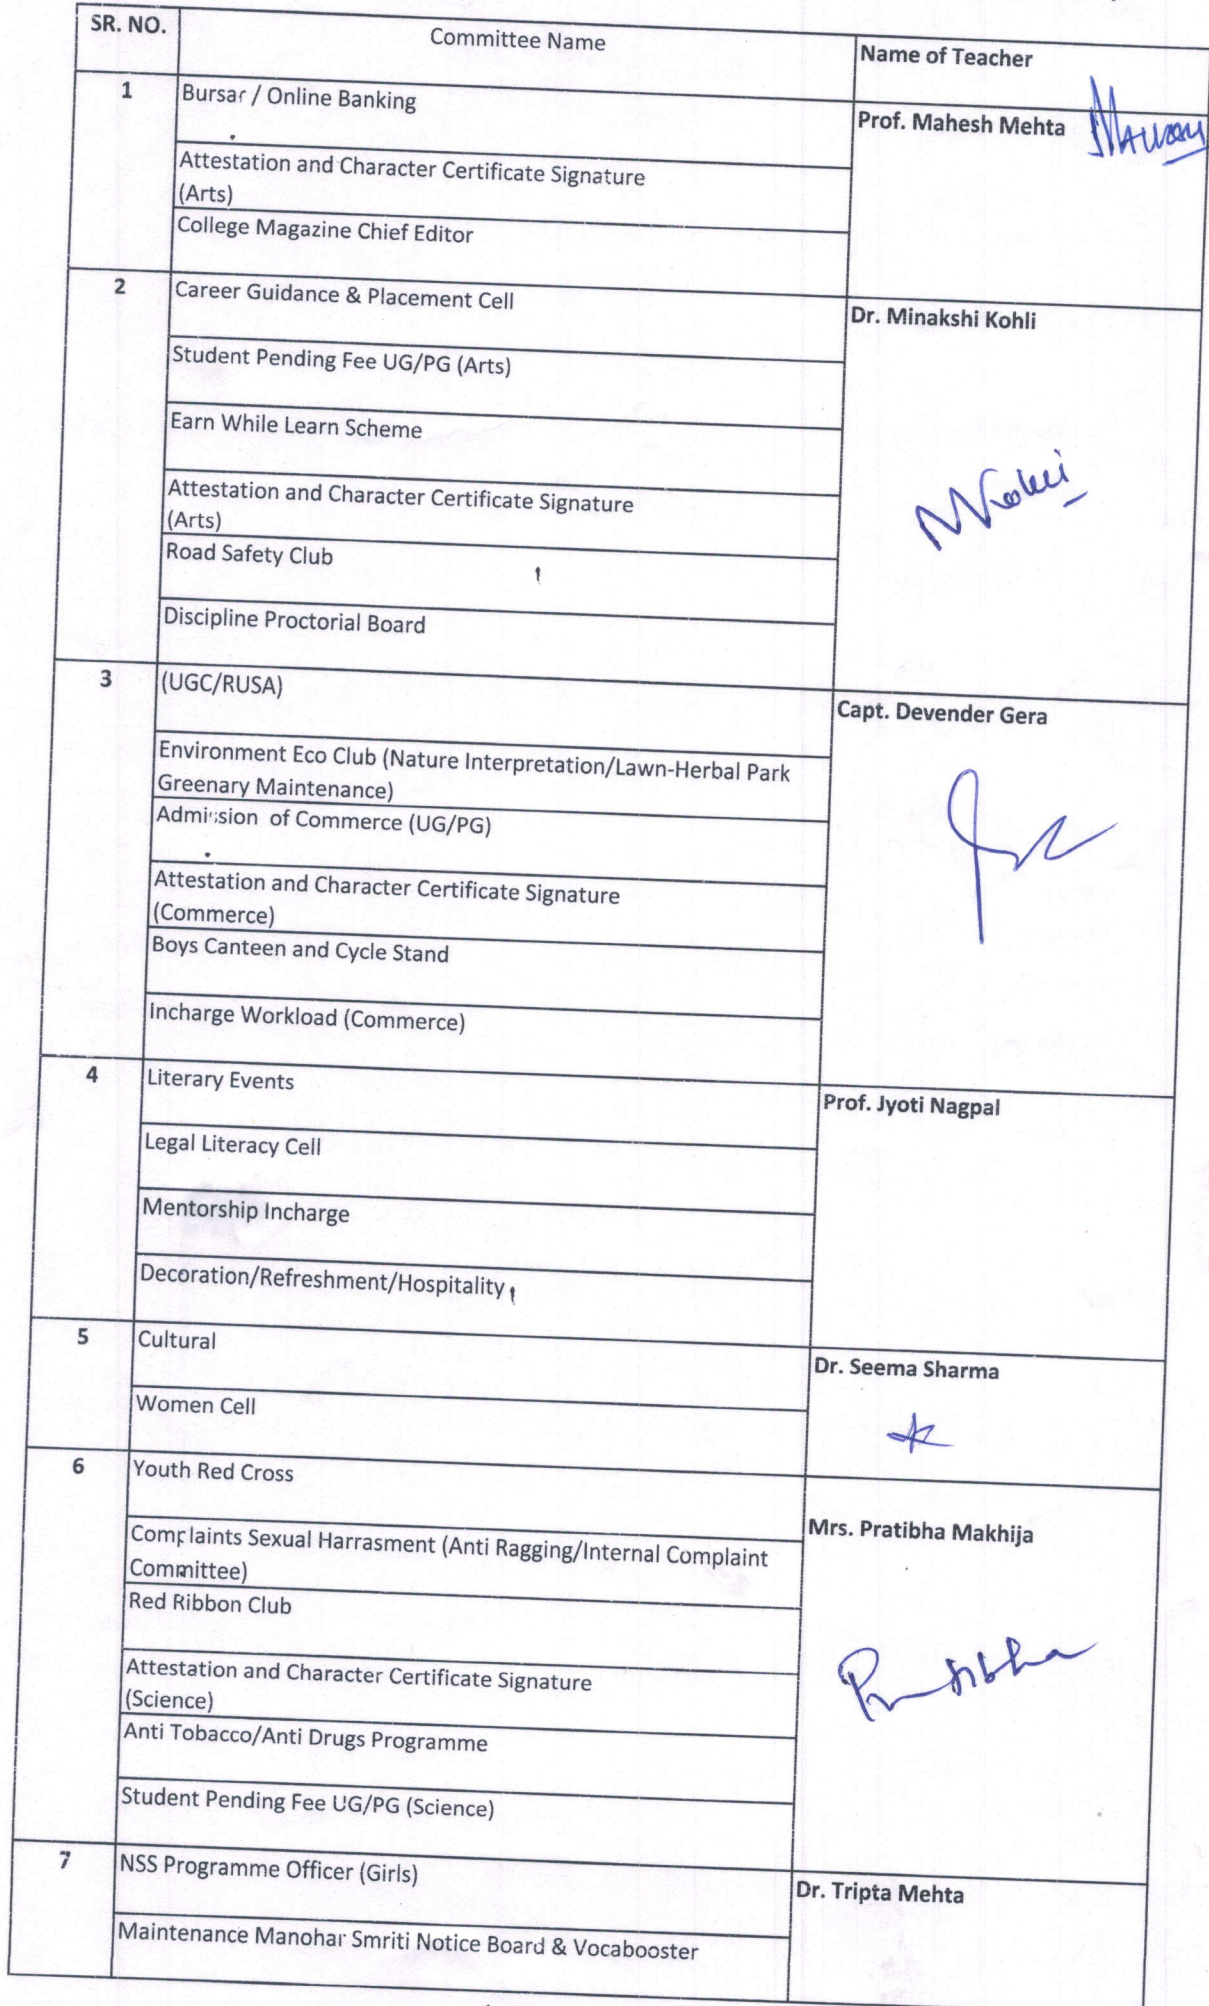 SR. NO. Committee Name Name of Teacher
1 Bursar / Online Banking Prof. Mahesh Mehta
Attestation and Character Certificate Signature
(Arts)
College Magazine Chief Editor
2 Career Guidance & Placement Cell Dr. Minakshi Kohli
Student Pending Fee UG/PG (Arts)
Earn While Learn Scheme
Attestation and Character Certificate Signature
(Arts)
Road Safety Club
Discipline Proctorial Board
3 (UGC/RUSA) Capt. Devender Gera
Environment Eco Club (Nature Interpretation/Lawn-Herbal Park
Greenary Maintenance)
Admission of Commerce (UG/PG)
Attestation and Character Certificate Signature
(Commerce)
Boys Canteen and Cycle Stand
Incharge Workload (Commerce)
4 Literary Events Prof. Jyoti Nagpal
Legal Literacy Cell
Mentorship Incharge
Decoration/Refreshment/Hospitality
5 Cultural Dr. Seema Sharma
Women Cell
6 Youth Red Cross
Mrs. Pratibha Makhija
Complaints Sexual Harrasment (Anti Ragging/Internal Complaint
Committee)
Red Ribbon Club
Attestation and Character Certificate Signature
(Science)
Pratibha
Anti Tobacco/Anti Drugs Programme
Student Pending Fee UG/PG (Science)
7 NSS Programme Officer (Girls) Dr. Tripta Mehta
Maintenance Manohar Smriti Notice Board & Vocabooster